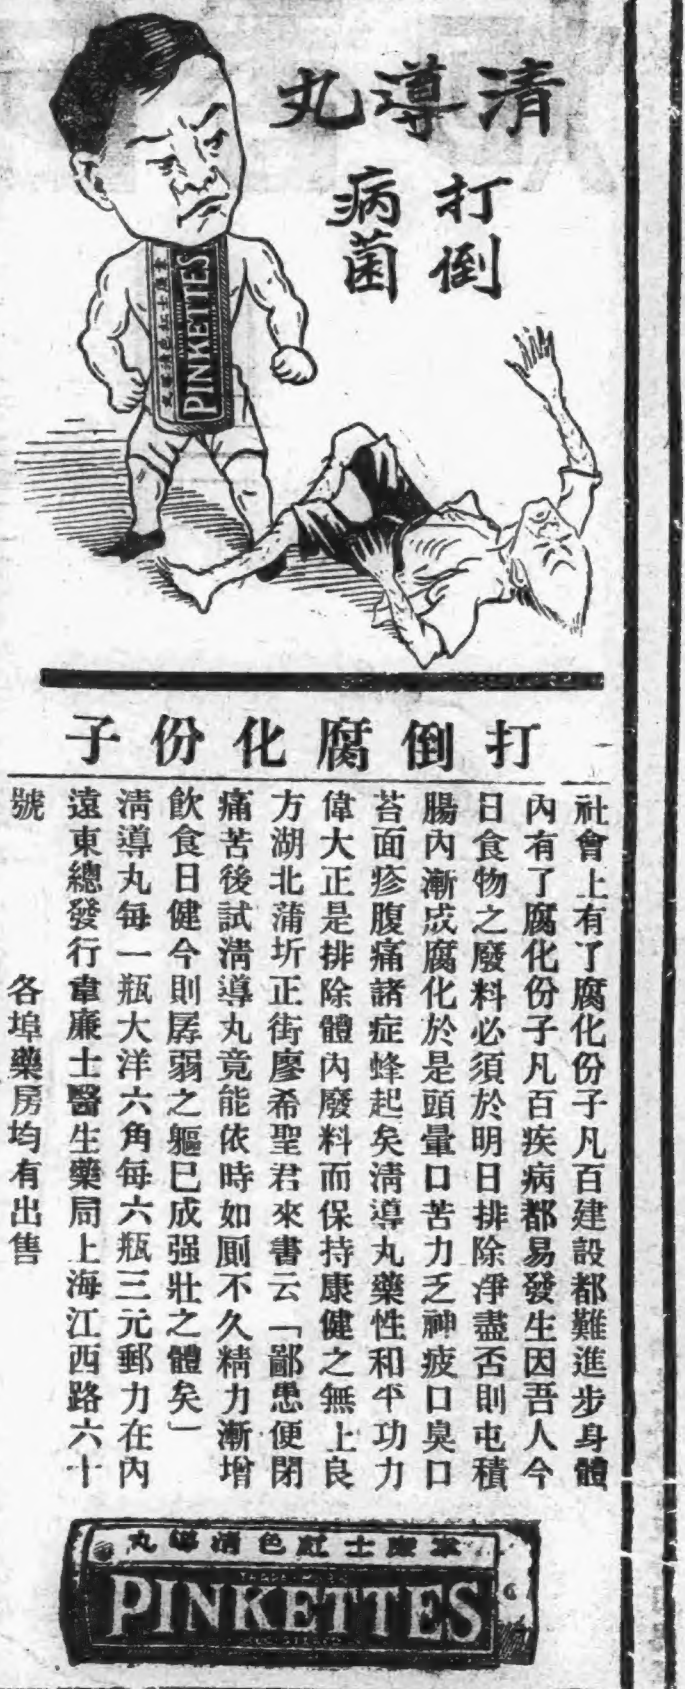 清導丸
打倒
病菌
韋廉士紅色清導丸
PINKETTES
打倒腐化份子
社會上有了腐化份子凡百建設都難進步身體
內有了腐化份子凡百疾病都易發生因吾人今
日食物之廢料必須於明日排除淨盡否則屯積
腸內漸成腐化於是頭暈口苦力乏神疲口臭口
苔面疹腹痛諸症蜂起矣清導丸藥性和平功力
偉大正是排除體內廢料而保持康健之無上良
方湖北蒲圻正街廖希聖君來書云「鄙患便閉
痛苦後試清導丸竟能依時如厠不久精力漸增
飲食日健今則孱弱之軀已成强壯之體矣」
清導丸每一瓶大洋六角每六瓶三元郵力在內
遠東總發行韋廉士醫生藥局上海江西路六十
號　各埠藥房均有出售
韋廉士紅色清導丸
PINKETTES